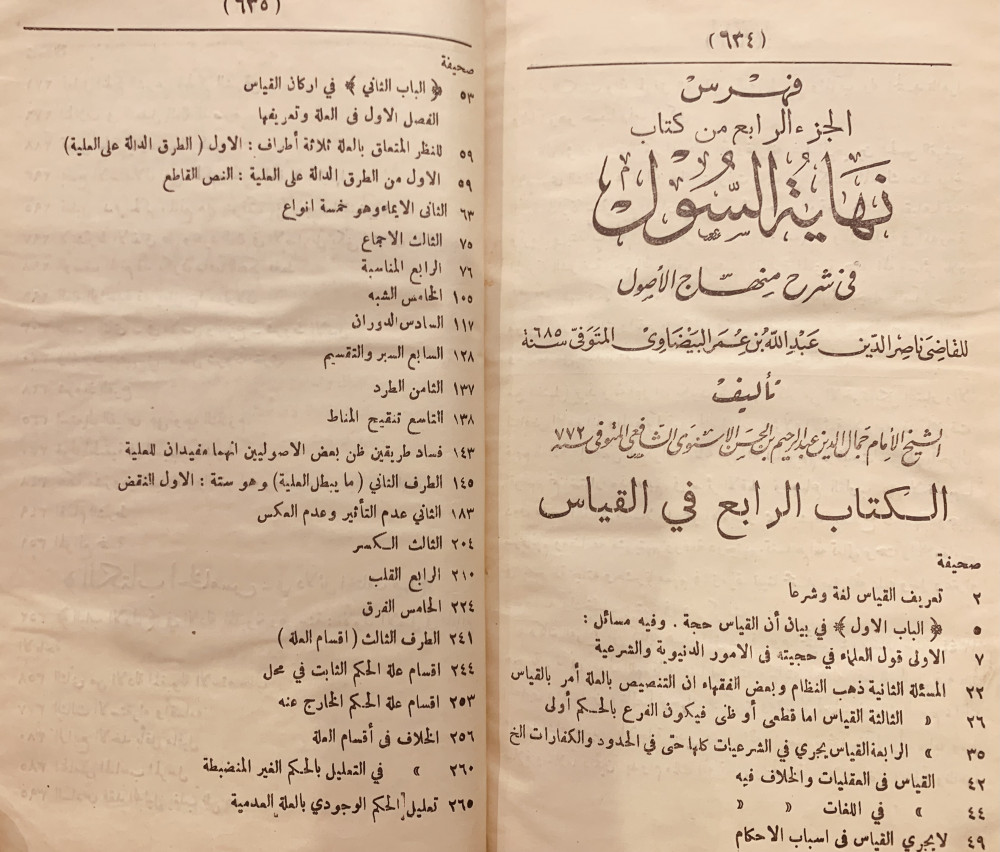 (٩٣٤)
فهرس
الجزء الرابع من كتاب
نهاية السول
في شرح منهاج الأصول
للقاضي ناصر الدين عبد الله بن عمر البيضاوي المتوفى سنة ٦٨٥
تأليف
الشيخ الإمام جمال الدين عبد الرحيم بن الحسن الإسنوي الشافعي المتوفى سنة ٧٧٢
الكتاب الرابع في القياس
صحيفة
٢ تعريف القياس لغة وشرعا
٥ ﴿ الباب الاول ﴾ في بيان أن القياس حجة . وفيه مسائل :
٧ الاولى قول العلماء في حجيته فى الامور الدنيوية والشرعية
٢٢ المسئلة الثانية ذهب النظام وبعض الفقهاء ان التنصيص بالعلة أمر بالقياس
٢٦ » الثالثة القياس اما قطعى أو ظنى فيكون الفرع بالحكم أولى
٣٥ » الرابعة القياس يجري في الشرعيات كلها حتى في الحدود والكفارات الخ
٤٢ القياس فى العقليات والخلاف فيه
٤٤ » في اللغات » »
٤٩ لا يجري القياس فى اسباب الاحكام
(٦٣٥)
صحيفة
٥٣ ﴿ الباب الثاني ﴾ في اركان القياس
الفصل الاول فى العلة وتعريفها
٥٩ للنظر المتعلق بالعلة ثلاثة أطراف : الاول ( الطرق الدالة على العلية)
٥٩ الاول من الطرق الدالة على العلية : النص القاطع
٦٣ الثانى الايماء وهو خمسة انواع
٧٥ الثالث الاجماع
٧٦ الرابع المناسبة
١٠٥ الخامس الشبه
١١٧ السادس الدوران
١٢٨ السابع السبر والتقسيم
١٣٧ الثامن الطرد
١٣٨ التاسع تنقيح المناط
١٤٣ فساد طريقين ظن بعض الاصوليين انهما مفيدان للعلية
١٤٥ الطرف الثاني ( ما يبطل العلية ) وهو ستة : الاول النقض
١٨٣ الثاني عدم التأثير وعدم العكس
٢٠٤ الثالث الكسر
٢١٠ الرابع القلب
٢٢٤ الخامس الفرق
٢٤١ الطرف الثالث ( اقسام العلة )
٢٤٤ اقسام علة الحكم الثابت في محل
٢٥٣ اقسام علة الحكم الخارج عنه
٢٥٦ الخلاف فى أقسام العلة
٢٦٠ » في التعليل بالحكم الغير المنضبطة
٢٦٥ تعليل الحكم الوجودي بالعلة العدمية